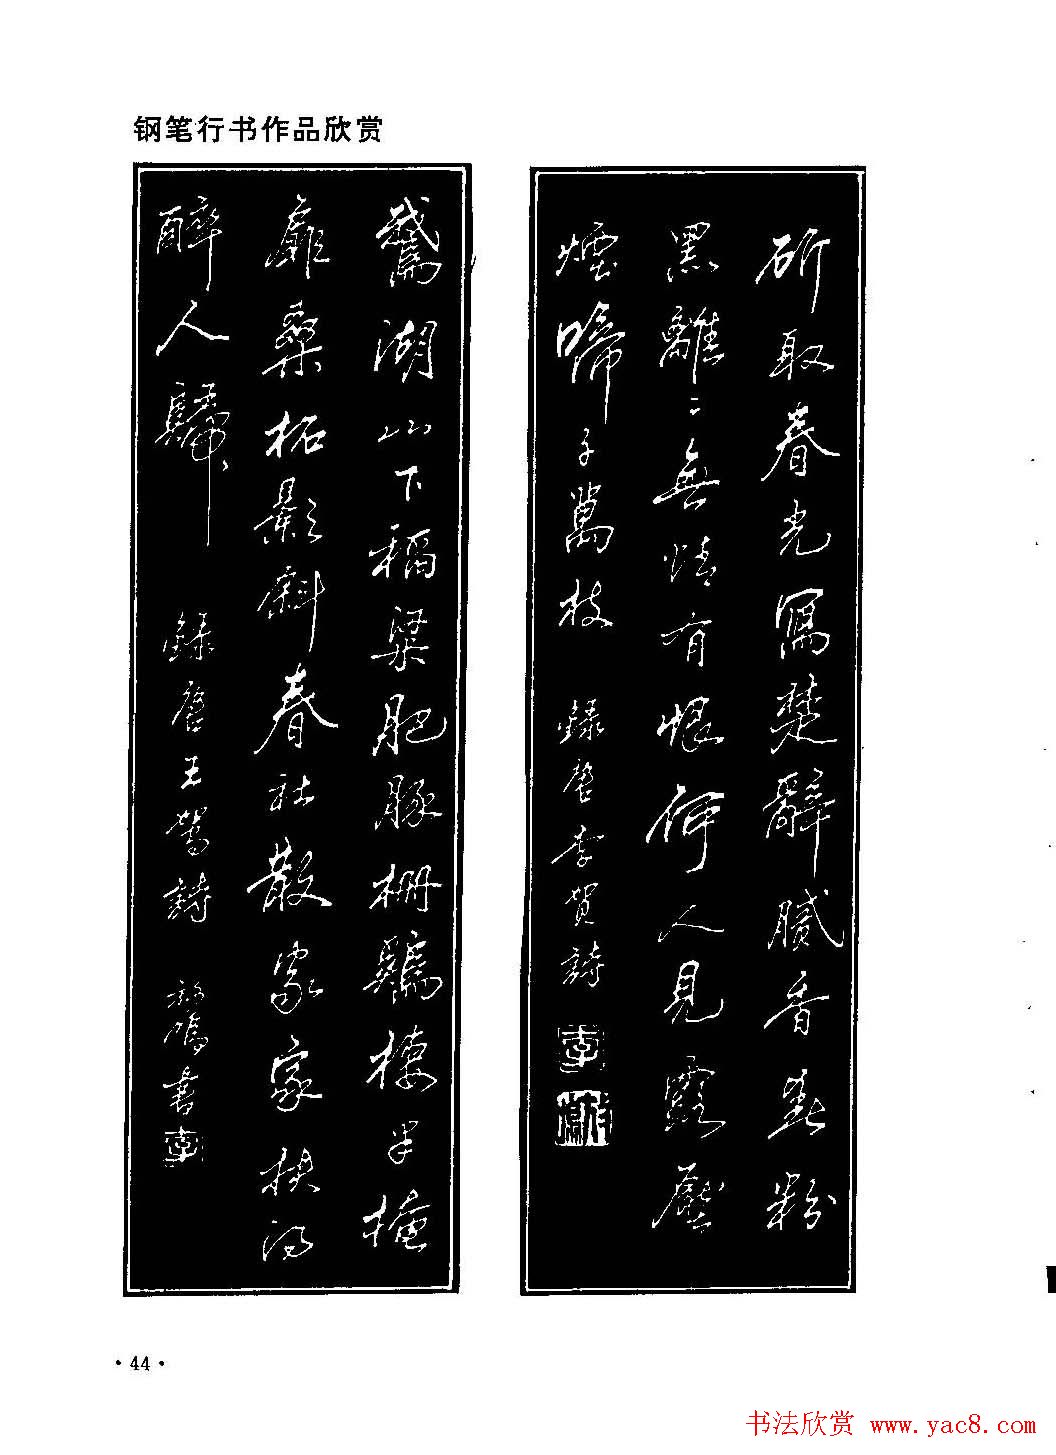 钢笔行书作品欣赏
斫取春光寫楚辭膩香春粉
黑離〻無情有恨何人見露壓
煙啼千萬枝 錄唐李賀詩
鵞湖山下稻粱肥豚柵鷄棲半掩
扉桑柘影斜春社散家家扶得
醉人歸 錄唐王駕詩 書
·44·
书法欣赏 www.yac8.com